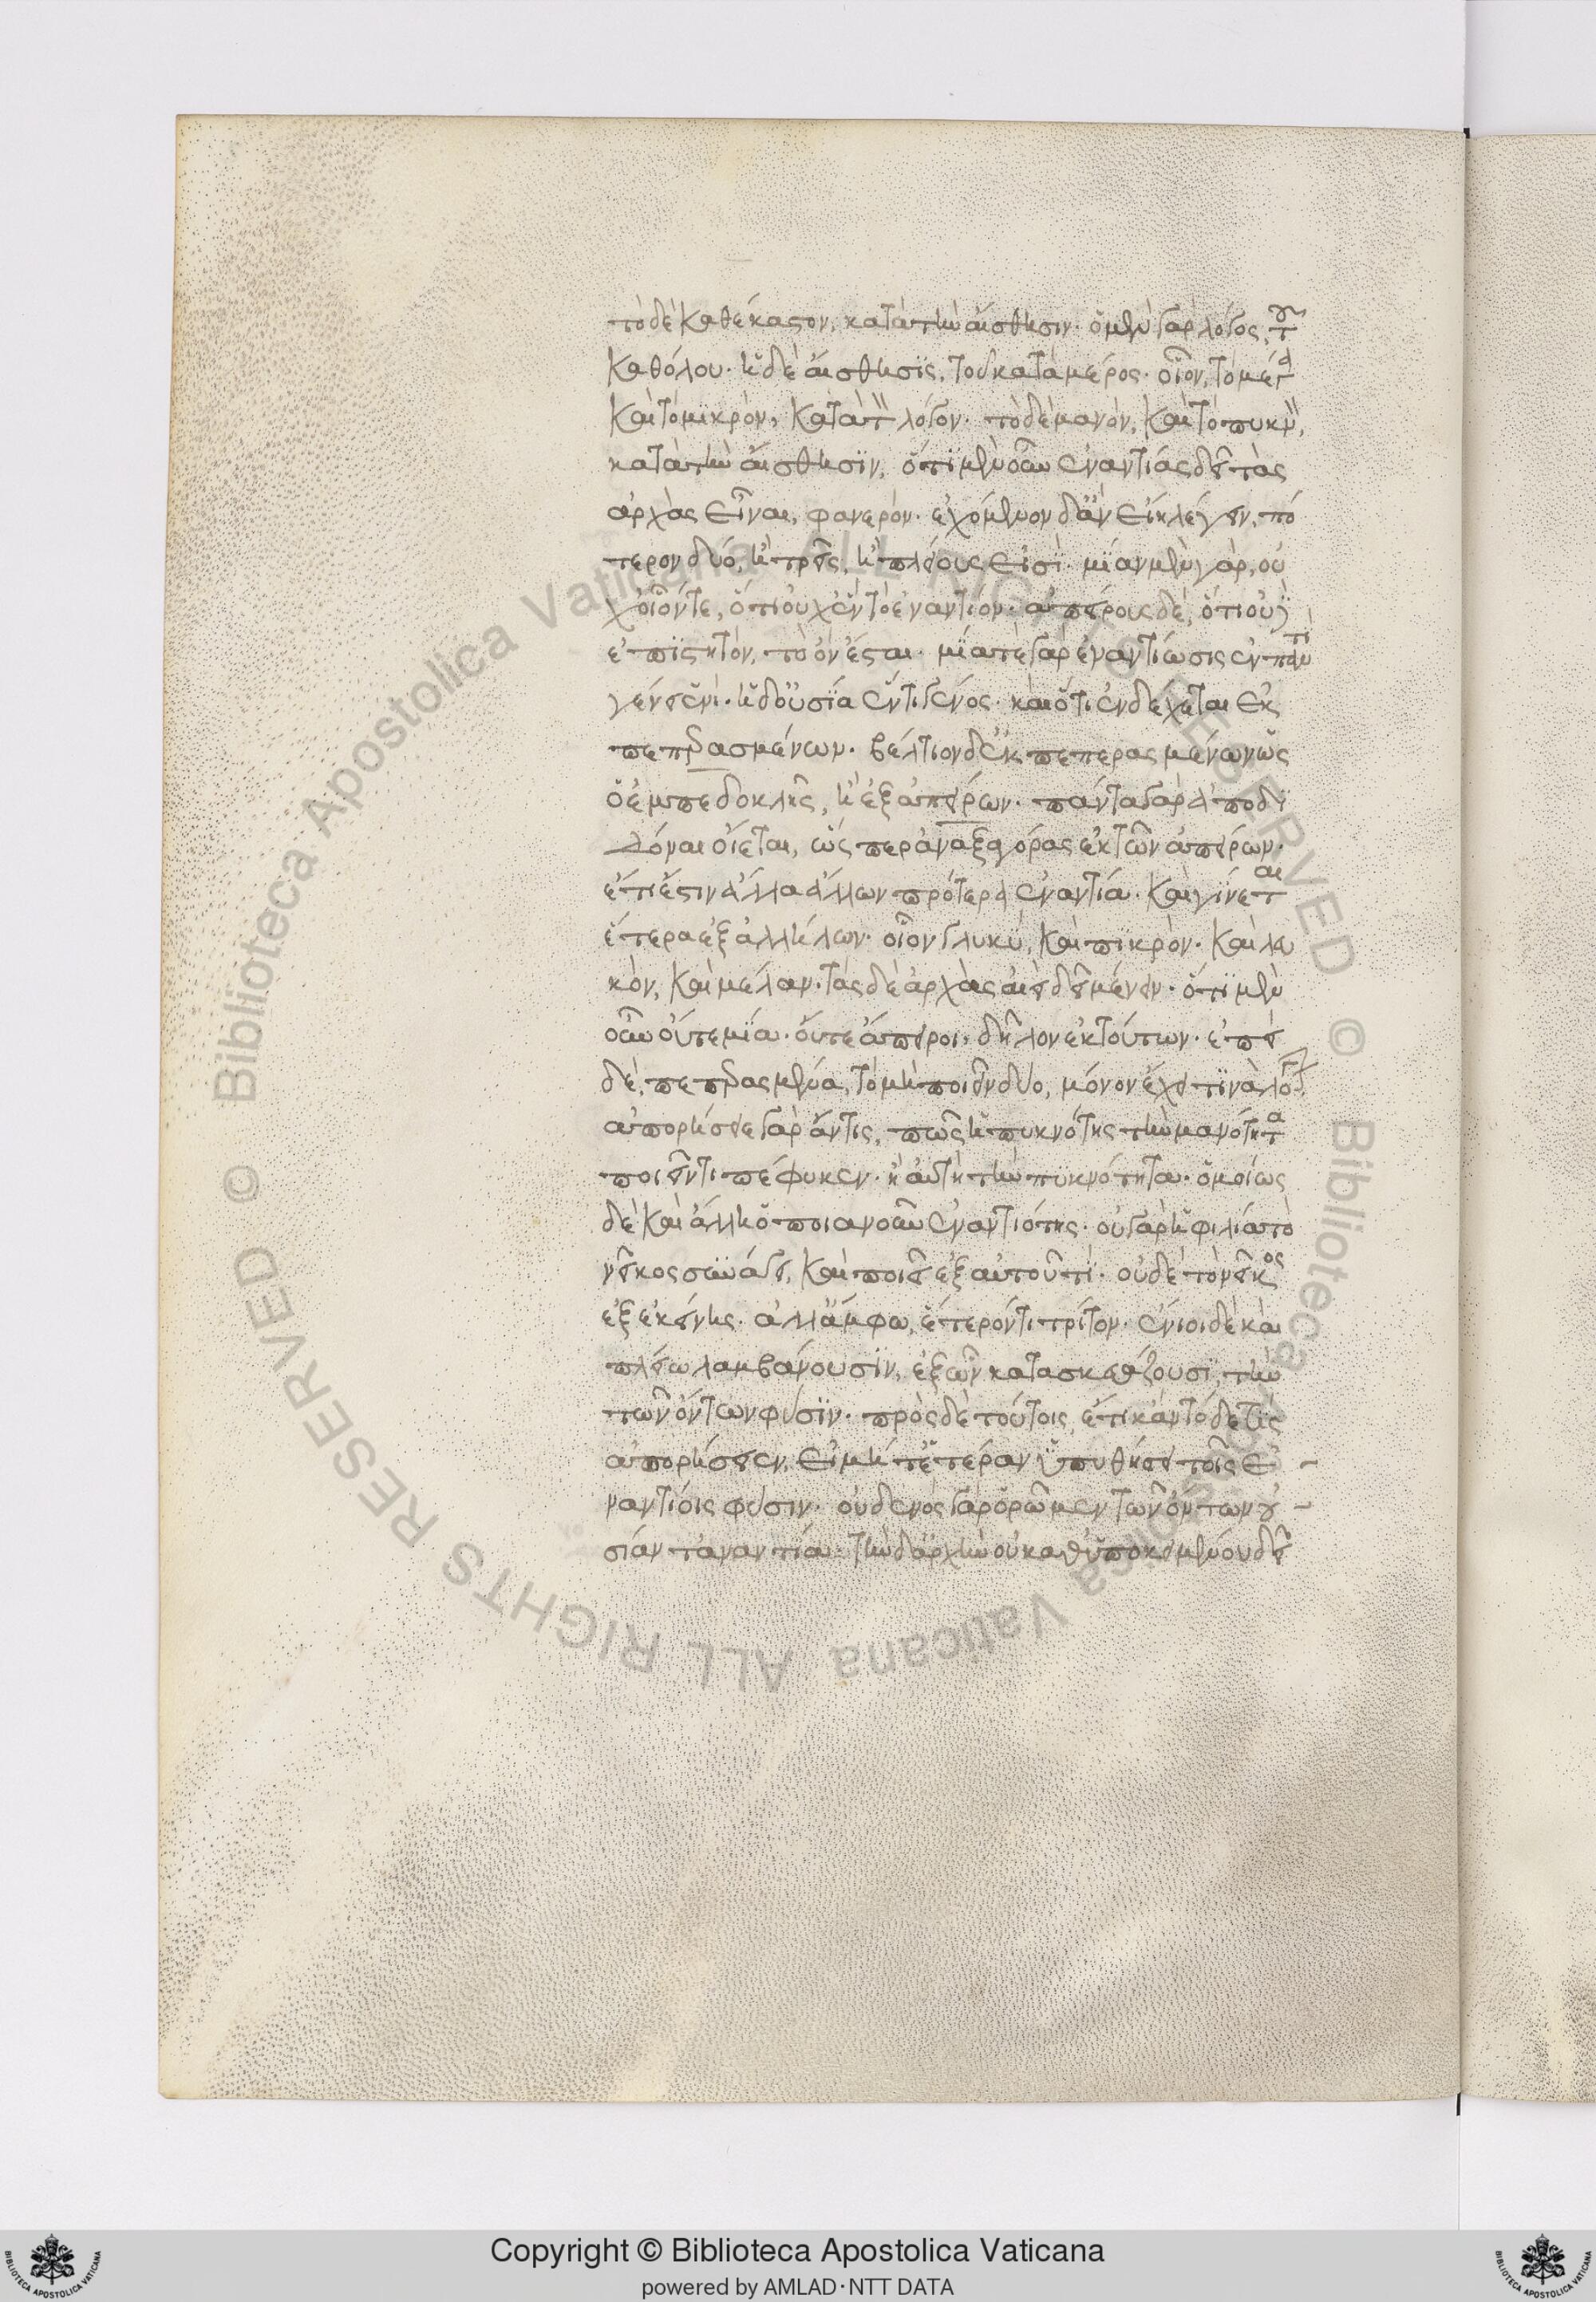 τὸ δὲ καθέκαστον, κατὰ τὴν αἴσθησιν· ὁ μὲν γὰρ λόγος, τοῦ
καθόλου· ἡ δὲ αἴσθησις, τοῦ κατὰ μέρος· οἷον, τὸ μέγα
καὶ τὸ μικρὸν, κατὰ τὸν λόγον· τὸ δὲ μανὸν, καὶ τὸ πυκνὸν,
κατὰ τὴν αἴσθησιν, ὅτι μὲν οὖν ἐναντίας δεῖ τὰς
ἀρχὰς εἶναι, φανερόν· ἐχόμενον δ' ἂν εἴη λέγειν, πό
τερον δύο, ἢ τρεῖς, ἢ πλείους εἰσὶ· μίαν μὲν γὰρ, οὐ
χ οἷόντε, ὅτι οὐχ ἓν τὸ ἐναντίον· ἀπείρους δὲ, ὅτι οὐκ
ἐπιστητὸν, τὸ ὂν ἔσται· μία τε γὰρ ἐναντίωσις ἐν παντὶ
γένει ἑνί· ἡ δ' οὐσία ἕν τι γένος· καὶ ὅτι ἐνδέχεται ἐκ
πεπερασμένων· βέλτιον δ' ἐκ πεπερασμένων ὡς
ὁ ἐμπεδοκλῆς, ἢ ἐξ ἀπείρων· πάντα γὰρ ἀποδι
δόναι οἴεται, ὥσπερ ἀναξαγόρας ἐκ τῶν ἀπείρων·
ἔτι ἔστιν ἄλλα ἄλλων πρότερα ἐναντία· καὶ γίνεται
ἕτερα ἐξ ἀλλήλων· οἷον γλυκὺ, καὶ πικρὸν· καὶ λευ
κὸν, καὶ μέλαν· τὰς δὲ ἀρχὰς αἰεὶ δεῖ μένειν· ὅτι μὲν
οὖν οὔτε μία· οὔτε ἄπειροι· δῆλον ἐκ τούτων· ἐπεὶ
δὲ, πεπερασμένα, τὸ μὴ ποιεῖν δύο, μόνον ἔχει τινὰ λόγον·
ἀπορήσειε γὰρ ἄν τις, πῶς ἢ πυκνότης τὴν μανότητα
ποιεῖν τι πέφυκεν· ἢ αὕτη τὴν πυκνότητα· ὁμοίως
δὲ καὶ ἄλλη ὁποιανοῦν ἐναντιότης· οὐ γὰρ ἡ φιλία τὸ
νεῖκος συνάγει, καὶ ποιεῖ ἐξ αὐτοῦ τὶ· οὐδὲ τὸ νεῖκος
ἐξ ἐκείνης· ἀλλ' ἄμφω, ἕτερόν τι τρίτον· ἔνιοι δὲ καὶ
πλείω λαμβάνουσιν, ἐξ ὧν κατασκευάζουσι, τὴν
τῶν ὄντων φύσιν· πρὸς δὲ τούτοις, ἔτι κἂν τόδε τίς
ἀπορήσειεν, εἰ μή τε ἑτέραν ὑποθήσει τοῖς ἐ
ναντίοις φύσιν· οὐδενὸς γὰρ ὁρῶμεν τῶν ὄντων οὐ
σίαν τἀναντία· τὴν δ' ἀρχὴν οὐ καθ' ὑποκειμένου δεῖ